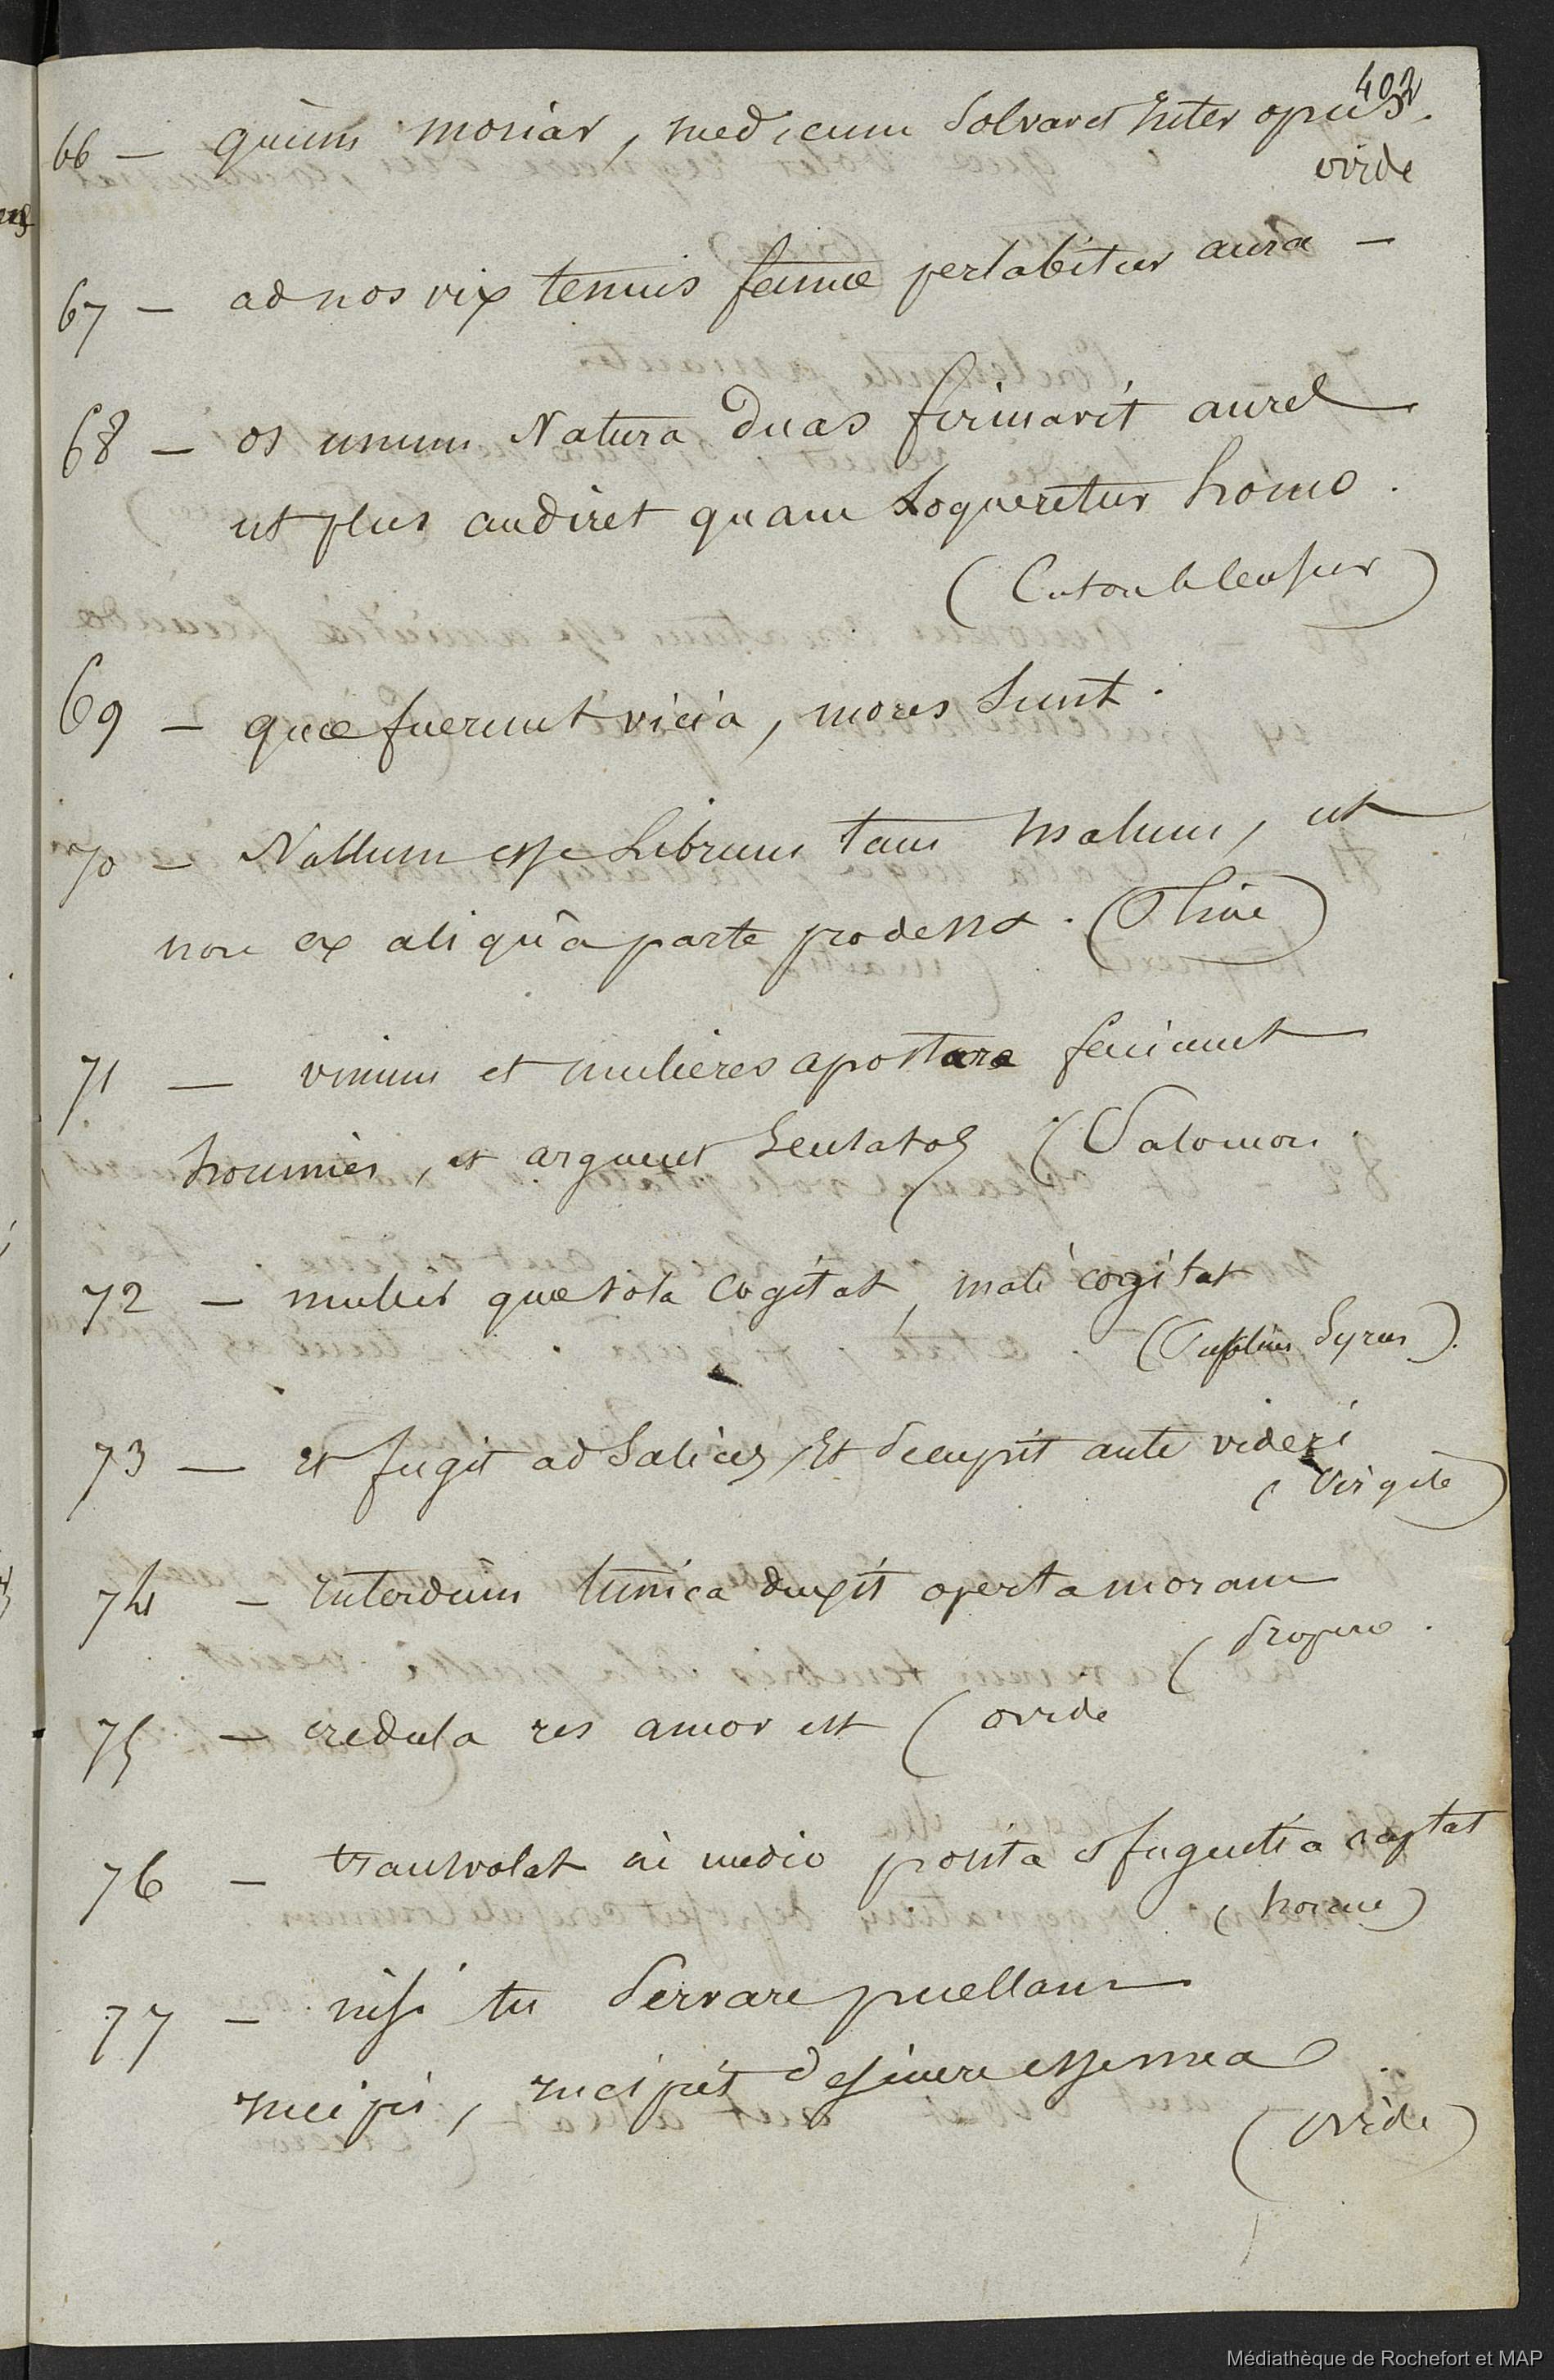 402
66 — quùm moriar, medium solvar et inter opus.
ovide
67 — ad nos vix tenuis famæ perlabitur aura —
68 — os unum Natura duas firmavit aures
ut plus audiret quam loqueretur homo.
(Caton le Censeur)
69 — quæ fuerunt vicia, mores sunt.
70 — Nullum esse Librum tam malum, ut
non ex aliquâ parte prodesset. (Pline)
71 — vinum et mulieres apostare faciunt
homines, et arguent sensatos (Salomon.
72 — mulier quæ sola cogitat, malè cogitat
(Publius Syrus).
73 — et fugit ad Salices, Et se cupit ante videri
(Virgile)
74 — interdùm tunica duxit operta moram
(Properce.
75 — credula res amor est (ovide
76 — transvolat in medio posita et fugientia captat
(horace)
77 — nisi tu servare puellam
incipis, incipiet desinere esse mea
(ovide)
Médiathèque de Rochefort et MAP